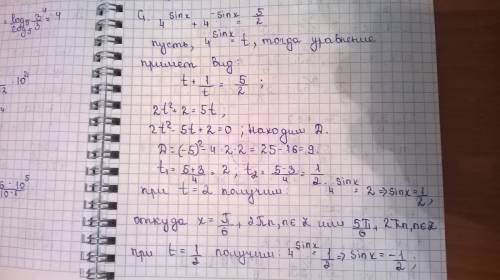 log₅ 2⁴
log₅ 5 = 4
· 10²
· 10⁵
C₁. 4^sinx + 4^-sinx = 5/2
пусть, 4^sinx = t, тогда уравнение
примет вид:
t + 1/t = 5/2 ;
2t² + 2 = 5t,
2t² - 5t + 2 = 0 ; находим D.
D = (-5)² - 4·2·2 = 25 - 16 = 9.
t₁ = 5+3/4 = 2, t₂ = 5-3/4 = 1/2.
при t = 2 получим: 4^sinx = 2 ⇒ sinx = 1/2,
откуда x = π/6 + 2πn, n∈Z или 5π/6, 2πn, n∈Z
при t = 1/2 получим: 4^sinx = 1/2 ⇒ sinx = -1/2;